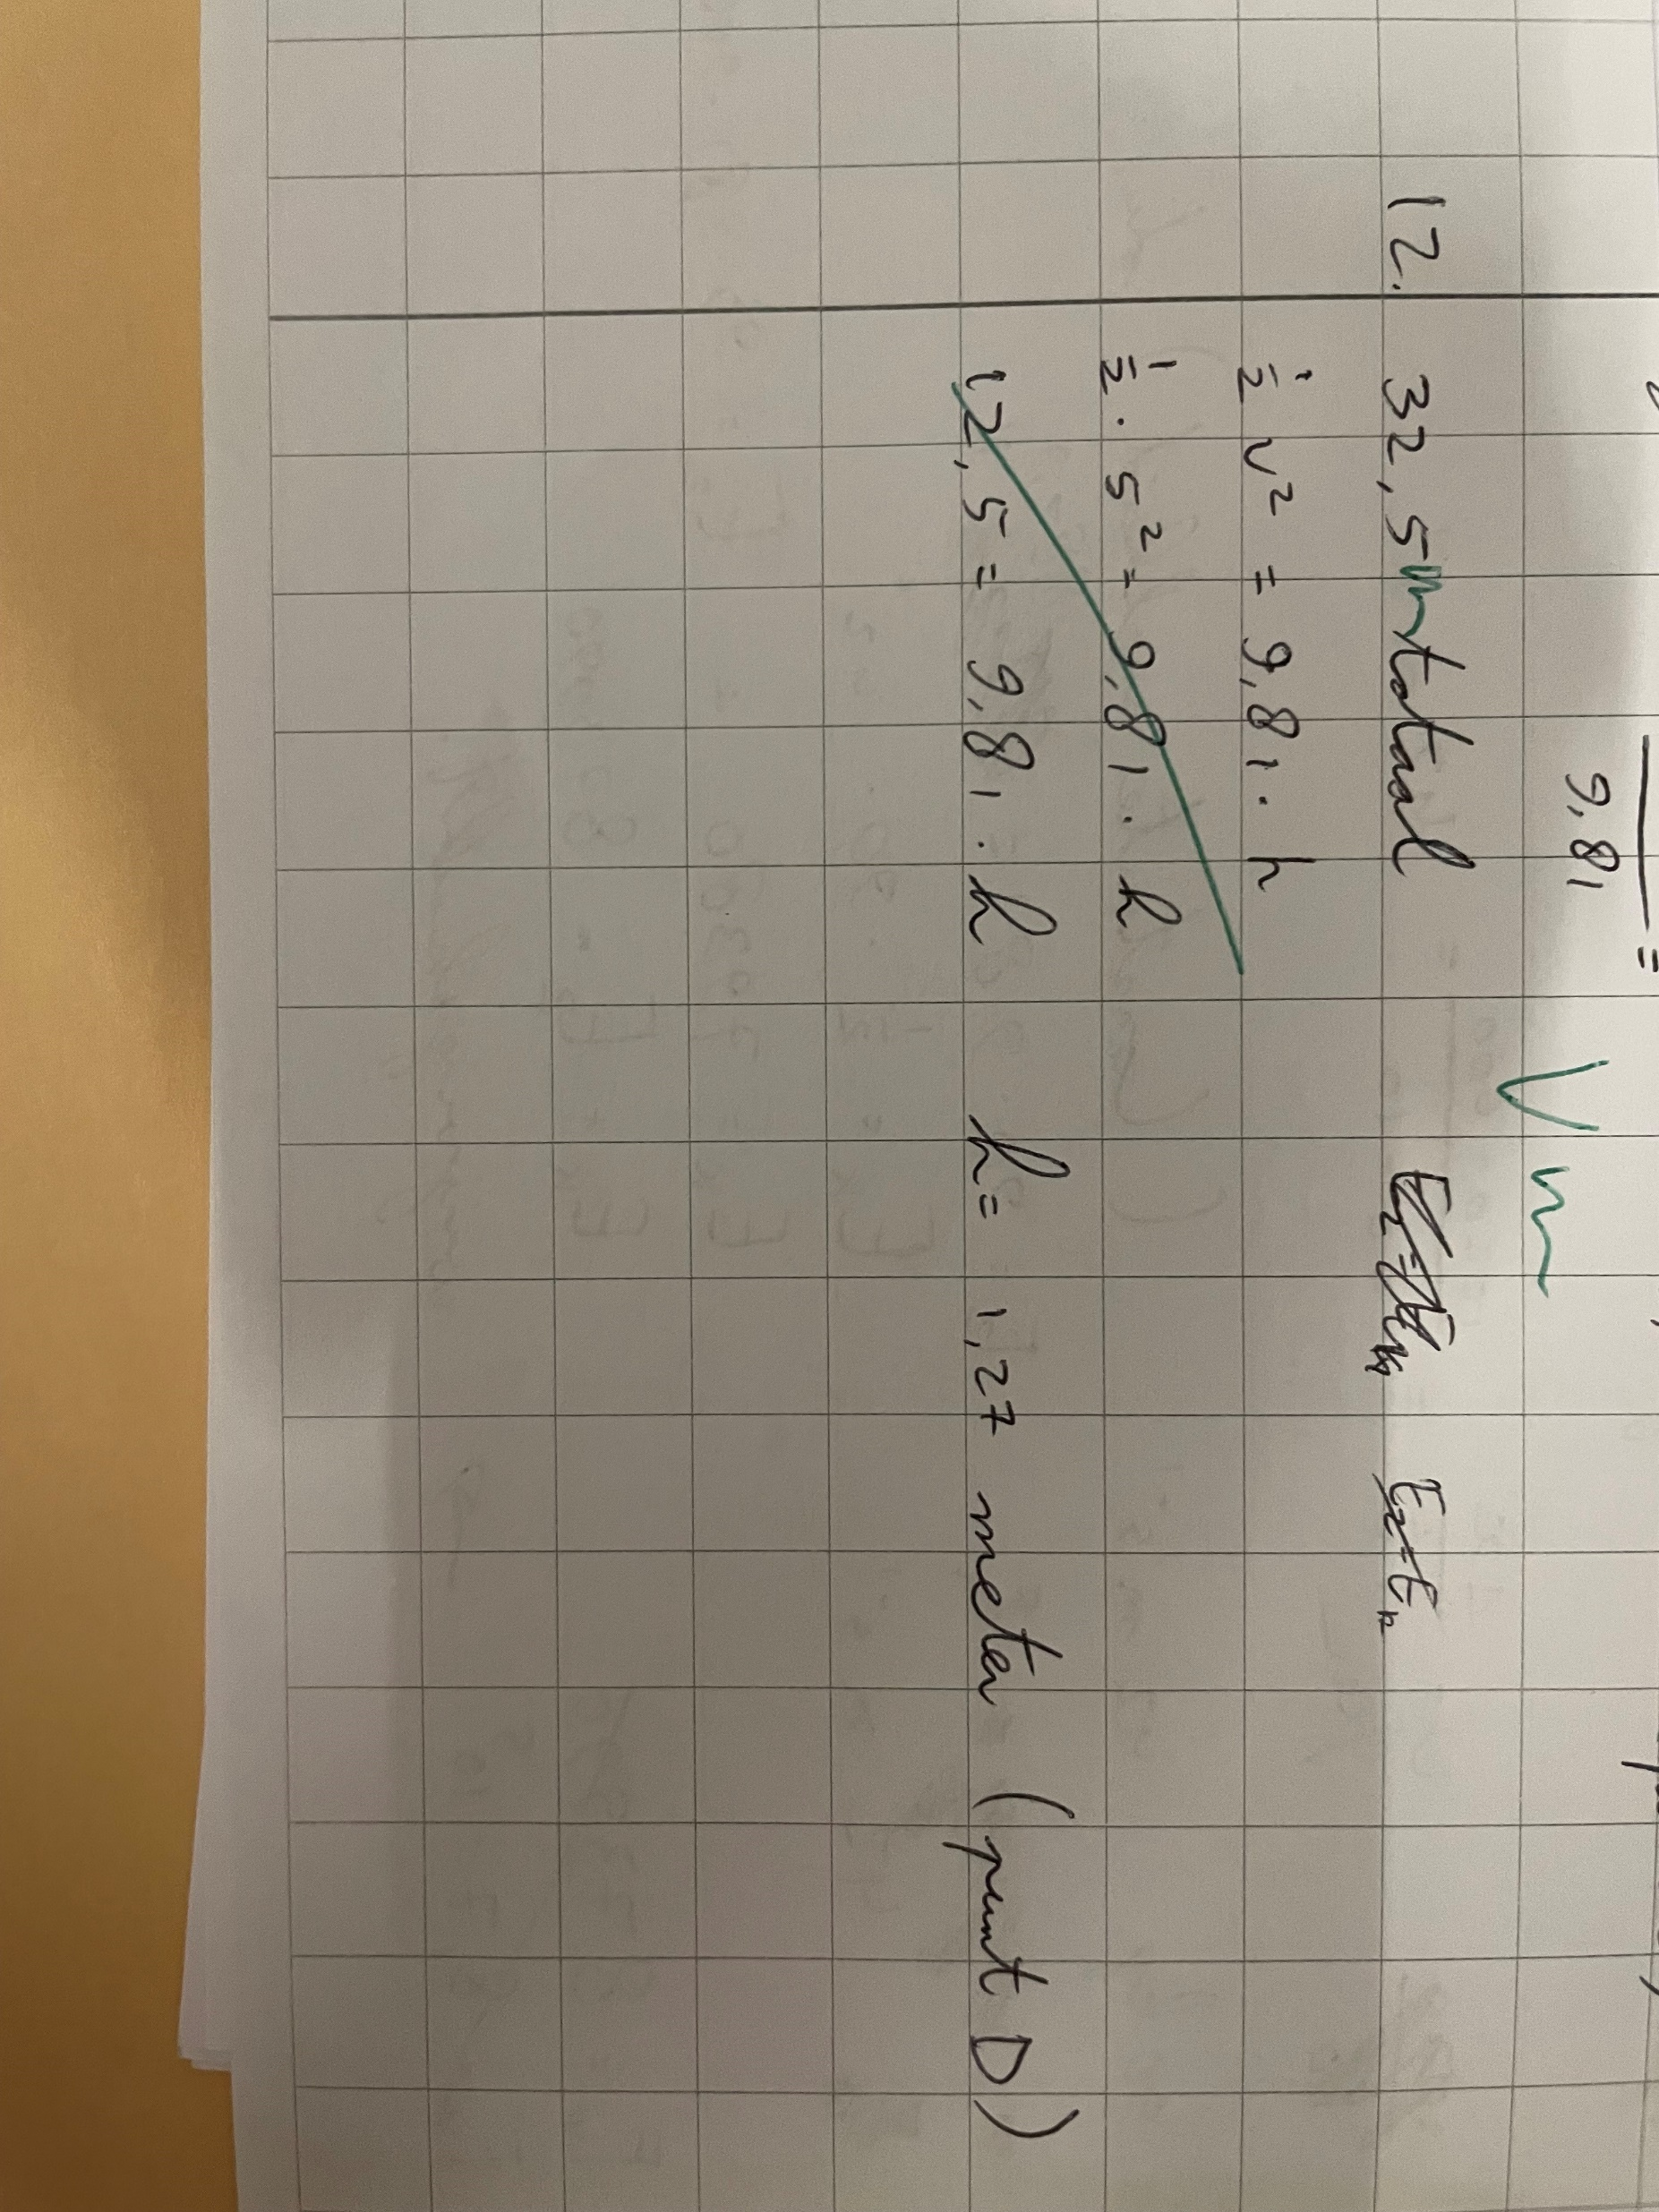 =
9,81 √ m
12. 32,5 m totaal Ez = Ek Ez=Ek
½ v² = 9,81 · h
½ · 5² = 9,81 · h
12,5 = 9,81 · h h = 1,27 meter (punt D)